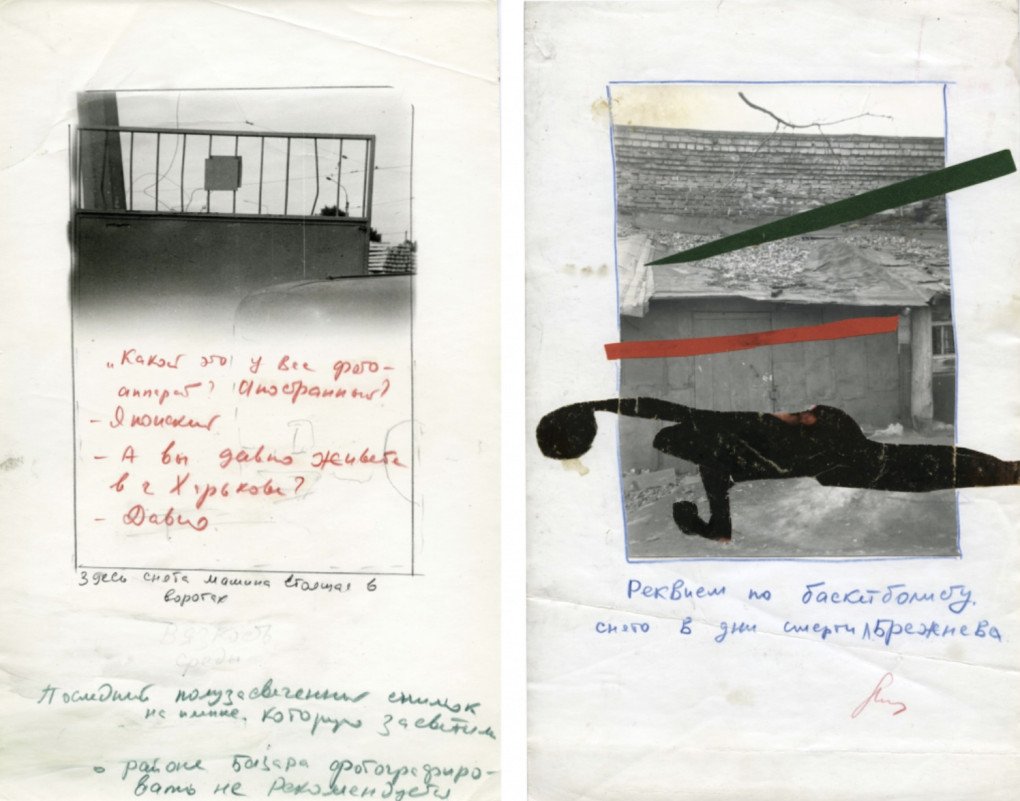 „Какой это у вас фото-
аппарат? Иностранный?
- Японский
- А вы давно живете
в г Харькове?
- Давно.
Здесь снята машина стоящая в
воротах
Вязкость
среды
Последний полузасвеченный снимок
на пленке, которую засветили
в районе базара фотографиро-
вать не рекомендуется
Реквием по баскетболисту.
снято в дни смерти Л Брежнева